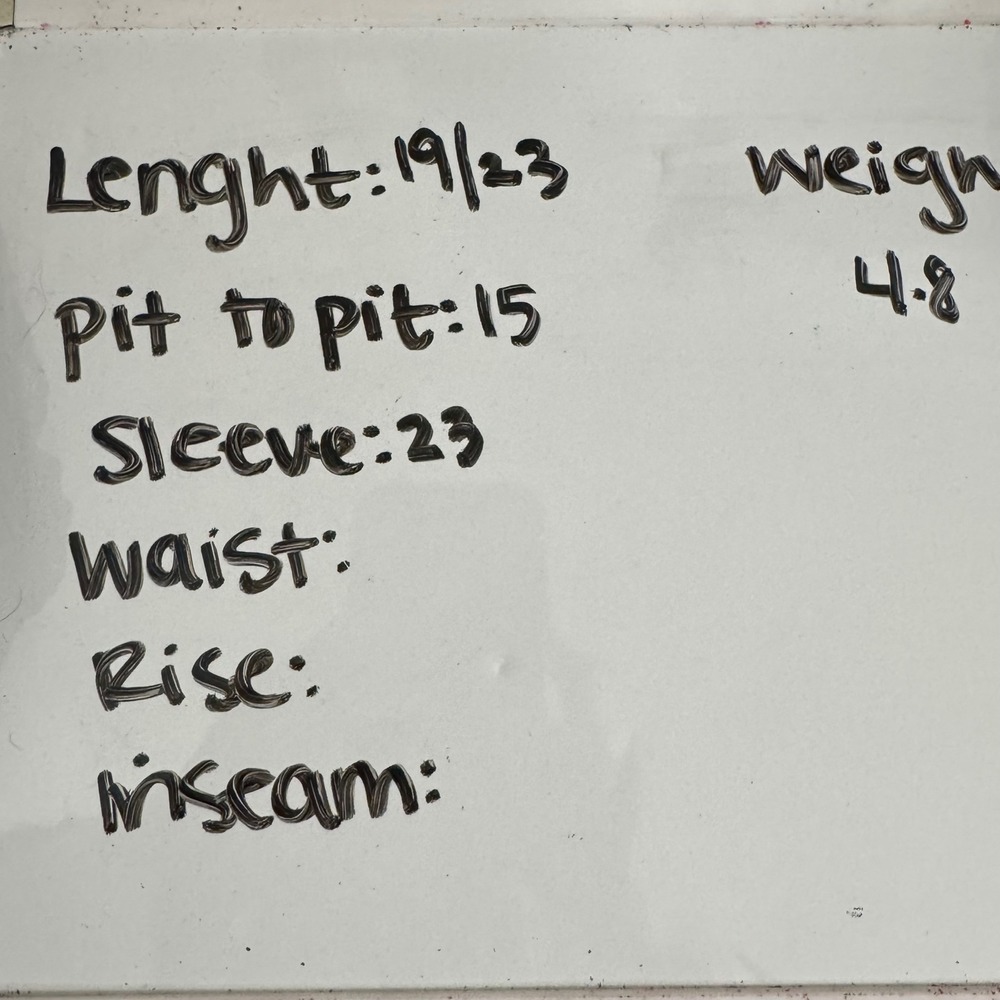 Lenght: 19/23
pit to pit: 15
Sleeve: 23
Waist:
Rise:
inseam:
weigh
4.8